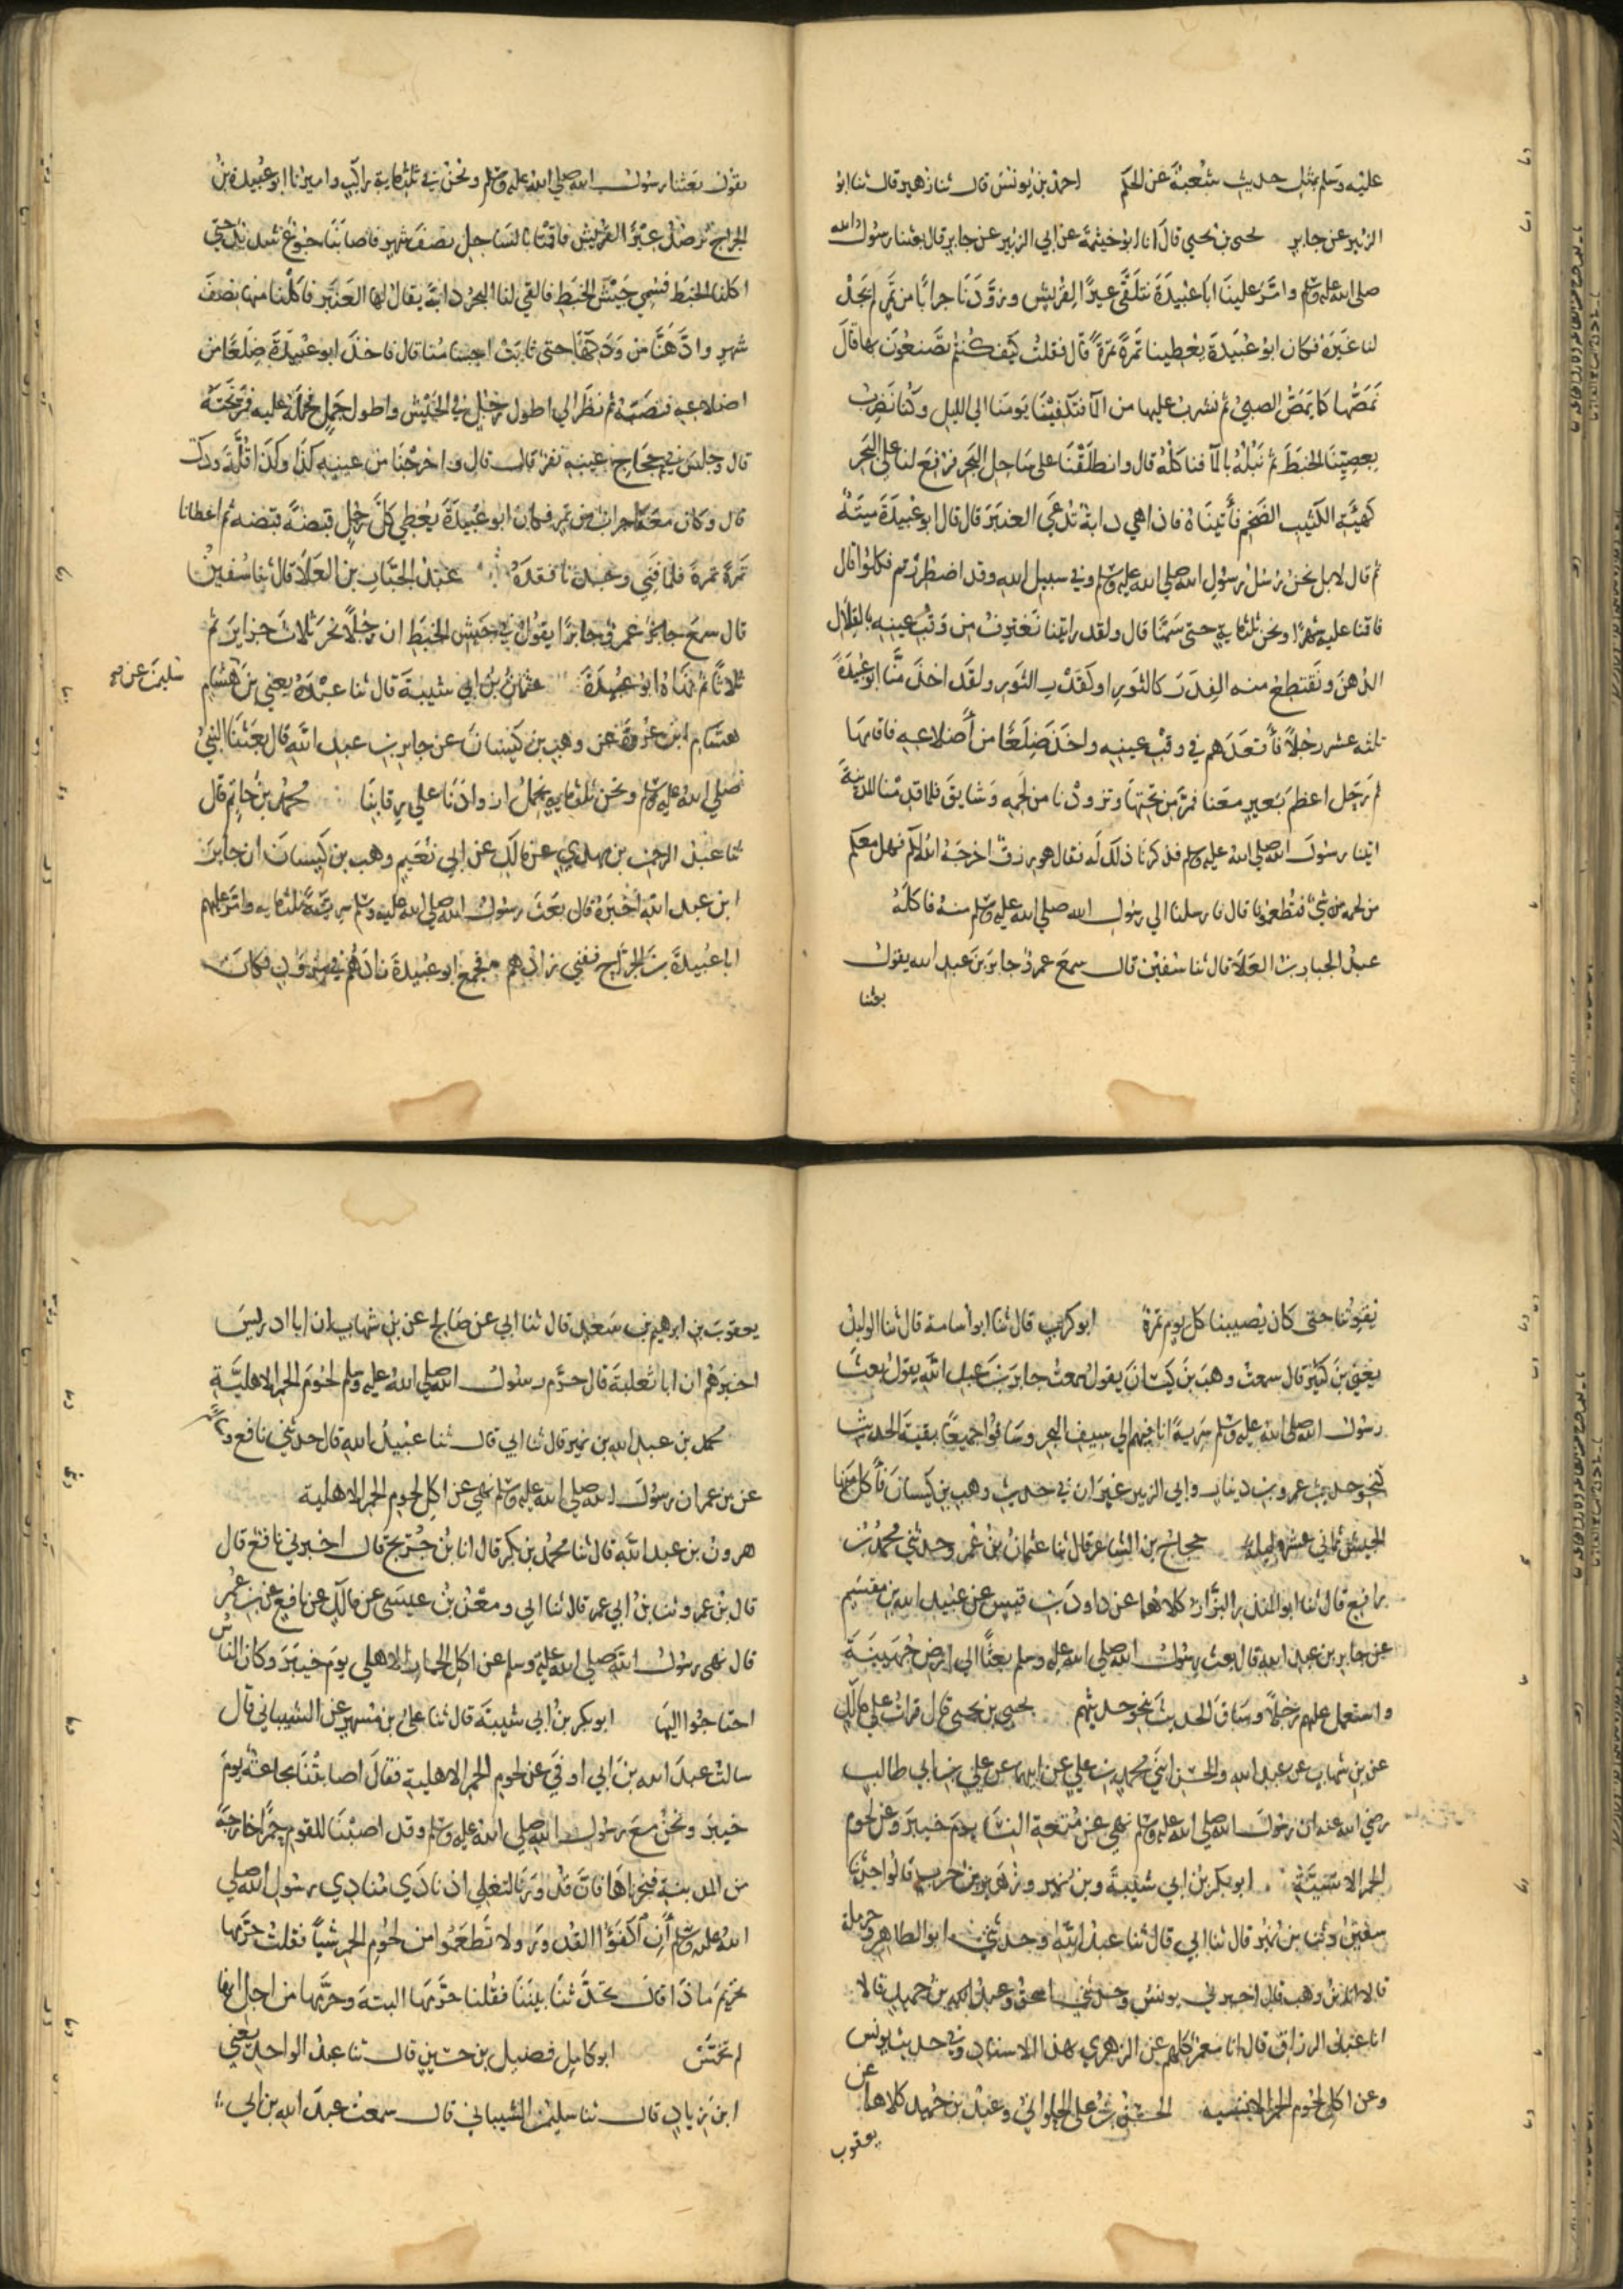 عليه وسلم بمثل حديث شعبة عن الحكم احمد بن يونس قال ثنا زهير قال ثنا ابو
الزبير عن جابر يحيى بن يحيى قال انا ابو خيثمة عن ابي الزبير عن جابر قال بعثنا رسول الله
صلى الله عليه وسلم وامر علينا ابا عبيدة نتلقى عيرا لقريش وزودنا جرابا من تمر لم يجد
لنا غيره فكان ابو عبيدة يعطينا تمرة تمرة قال فقلت كيف كنتم تصنعون بها قال
نمصها كما يمص الصبي ثم نشرب عليها من الما فتكفينا يومنا الى الليل وكنا نضرب
بعصينا الخبط ثم نبله بالما فناكله قال وانطلقنا على ساحل البحر فرفع لنا على البحر
كهيئة الكثيب الضخم فأتيناه فاذا هي دابة تدعى العنبر قال قال ابو عبيدة ميتة
ثم قال لا بل نحن رسل رسول الله صلى الله عليه وسلم وفي سبيل الله وقد اضطررتم فكلوا قال
فاقمنا عليه شهرا ونحن ثلثماية حتى سمنا قال ولقد رايتنا نغترف من وقب عينه بالقلال
الدهن ونقتطع منه الفدر كالثور او كقدر الثور ولقد اخذ منا ابو عبيدة
ثلثة عشر رجلا فأقعدهم في وقب عينه واخذ ضلعا من أضلاعه فاقامها
ثم رحل اعظم بعير معنا فمر من تحتها وتزودنا من لحمه وشايق فلما قدمنا المدينة
اتينا رسول الله صلى الله عليه وسلم فذكرنا ذلك له فقال هو رزق اخرجه الله لكم فهل معكم
من لحمه من شي فتطعمونا قال فارسلنا الى رسول الله صلى الله عليه وسلم منه فاكله
عبد الجبار بن العلا قال ثنا سفين قال سمع عمرو جابر بن عبد الله يقول
بعثنا
يقول بعثنا رسول الله صلى الله عليه وسلم ونحن في ثلثماية راكب واميرنا ابو عبيدة بن
الجراح نرصد عيرا لقريش فاقمنا بالساحل نصف شهر فاصابنا جوع شديد حتى
اكلنا الخبط فسمي جيش الخبط فالقى لنا البحر دابة يقال لها العنبر فاكلنا منها نصف
شهر وادهنا من ودكها حتى ثابت اجسامنا قال فاخذ ابو عبيدة ضلعا من
اضلاعه فنصبه ثم نظر الى اطول رجل في الجيش واطول جمل فحمله عليه فمر تحته
قال وجلس في حجاج عينه نفر قال قال واخرجنا من عينه كذا وكذا قلة ودك
قال وكان معنا جراب من تمر فكان ابو عبيدة يعطي كل رجل قبضة قبضه ثم اعطانا
تمرة تمرة فلما فني وجدنا فقده عبد الجبار بن العلا قال ثنا سفين
قال سمع عمرو جابرا يقول في جيش الخبط ان رجلا نحر ثلاث جزاير ثم
ثلاثا ثم نهاه ابو عبيدة عثمان بن ابي شيبة قال ثنا عبدة يعني بن
هشام ابن عروة عن وهب بن كيسان عن جابر بن عبد الله قال بعثنا النبي
صلى الله عليه وسلم ونحن ثلثماية نحمل ازوادنا على رقابنا محمد بن حاتم قال
ثنا عبد الرحمن بن مهدي عن مالك عن ابي نعيم وهب بن كيسان ان جابر
ابن عبد الله أخبره قال بعث رسول الله صلى الله عليه وسلم سرية ثلثمايه وامر عليهم
ابا عبيدة بن الجراح ففني زادهم فجمع ابو عبيدة زادهم في مزود فكان
يقوتنا حتى كان يصيبنا كل يوم تمرة ابو كريب قال ثنا ابو اسامة قال ثنا الوليد
يعني بن كثير قال سمعت وهب بن كيسان يقول سمعت جابر بن عبد الله يقول بعث
رسول الله صلى الله عليه وسلم سرية انا فيهم الى سيف البحر وساقوا جميعا بقية الحديث
كنحو حديث عمرو بن دينار وابي الزبير غير ان في حديث وهب بن كيسان فأكل منها
الجيش ثماني عشر ليلة حجاج بن الشاعر قال ثنا عثمان بن عمر وحدثني محمد بن
رافع قال ثنا ابو المنذر البزاز كلاهما عن داود بن قيس عن عبيد الله بن مقسم
عن جابر بن عبد الله قال بعث رسول الله صلى الله عليه وسلم بعثا الى ارض جهينة
واستعمل عليهم رجلا وساق الحديث بنحو حديثهم يحيى بن يحيى قال قرات على مالك
عن بن شهاب عن عبد الله والحسن ابني محمد بن علي عن ابيهما عن علي بن ابي طالب
رضي الله عنه ان رسول الله صلى الله عليه وسلم نهى عن متعة النسا يوم خيبر وعن لحوم
الحمر الانسية ابو بكر بن ابي شيبة وبن نمير وزهير بن حرب قالوا حدثنا
سفين وثنا بن نمير قال ثنا ابي قال ثنا عبيد الله وحدثني ابو الطاهر وحرملة
قالا انا بن وهب قال اخبرني يونس وحدثني اسحق وعبد بن حميد قالا
انا عبد الرزاق قال انا معمر كلهم عن الزهري بهذا الاسناد وفي حديث يونس
وعن اكل لحوم الحمر الانسيه الحسن بن علي الحلواني وعبد بن حميد كلاهما عن
يعقوب
يعقوب بن ابرهيم بن سعد قال ثنا ابي عن صالح عن بن شهاب ان ابا ادريس
اخبرهم ان ابا ثعلبة قال حرم رسول الله صلى الله عليه وسلم لحوم الحمر الاهلية
محمد بن عبد الله بن نمير قال ثنا ابي قال ثنا عبيد الله قال حدثني نافع وسالم
عن بن عمر ان رسول الله صلى الله عليه وسلم نهى عن اكل لحوم الحمر الاهلية
هرون بن عبد الله قال ثنا محمد بن بكر قال انا بن جريج قال اخبرني نافع قال
قال بن عمر وثنا بن ابي عمر قال ثنا ابي ومعن بن عيسى عن مالك عن نافع عن بن عمر
قال نهى رسول الله صلى الله عليه وسلم عن اكل الحمار الاهلي يوم خيبر وكان الناس
احتاجوا اليها ابو بكر بن ابي شيبة قال ثنا علي بن مسهر عن الشيباني قال
سالت عبد الله بن ابي اوفى عن لحوم الحمر الاهلية فقال اصابتنا مجاعة يوم
خيبر ونحن مع رسول الله صلى الله عليه وسلم وقد اصبنا للقوم حمرا خارجة
من المدينة فنحرناها فان قدورنا لتغلي اذ نادى منادي رسول الله صلى
الله عليه وسلم أن اكفؤا القدور ولا تطعموا من لحوم الحمر شيا فقلت حرمها
تحريم ماذا قال تحدثنا بيننا فقلنا حرمها البتة وحرمها من اجل انها
لم تخمس ابو كامل فضيل بن حسين قال ثنا عبد الواحد يعني
ابن زياد قال ثنا سليمن الشيباني قال سمعت عبد الله بن ابي